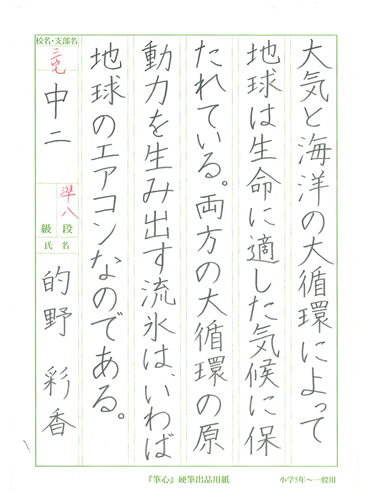 大気と海洋の大循環によって
地球は生命に適した気候に保
たれている。両方の大循環の原
動力を生み出す流氷は、いわば
地球のエアコンなのである。
校名・支部名
三屯
中二
準八
級 段
氏名
的野 彩香
『筆心』硬筆出品用紙
小学5年～一般用